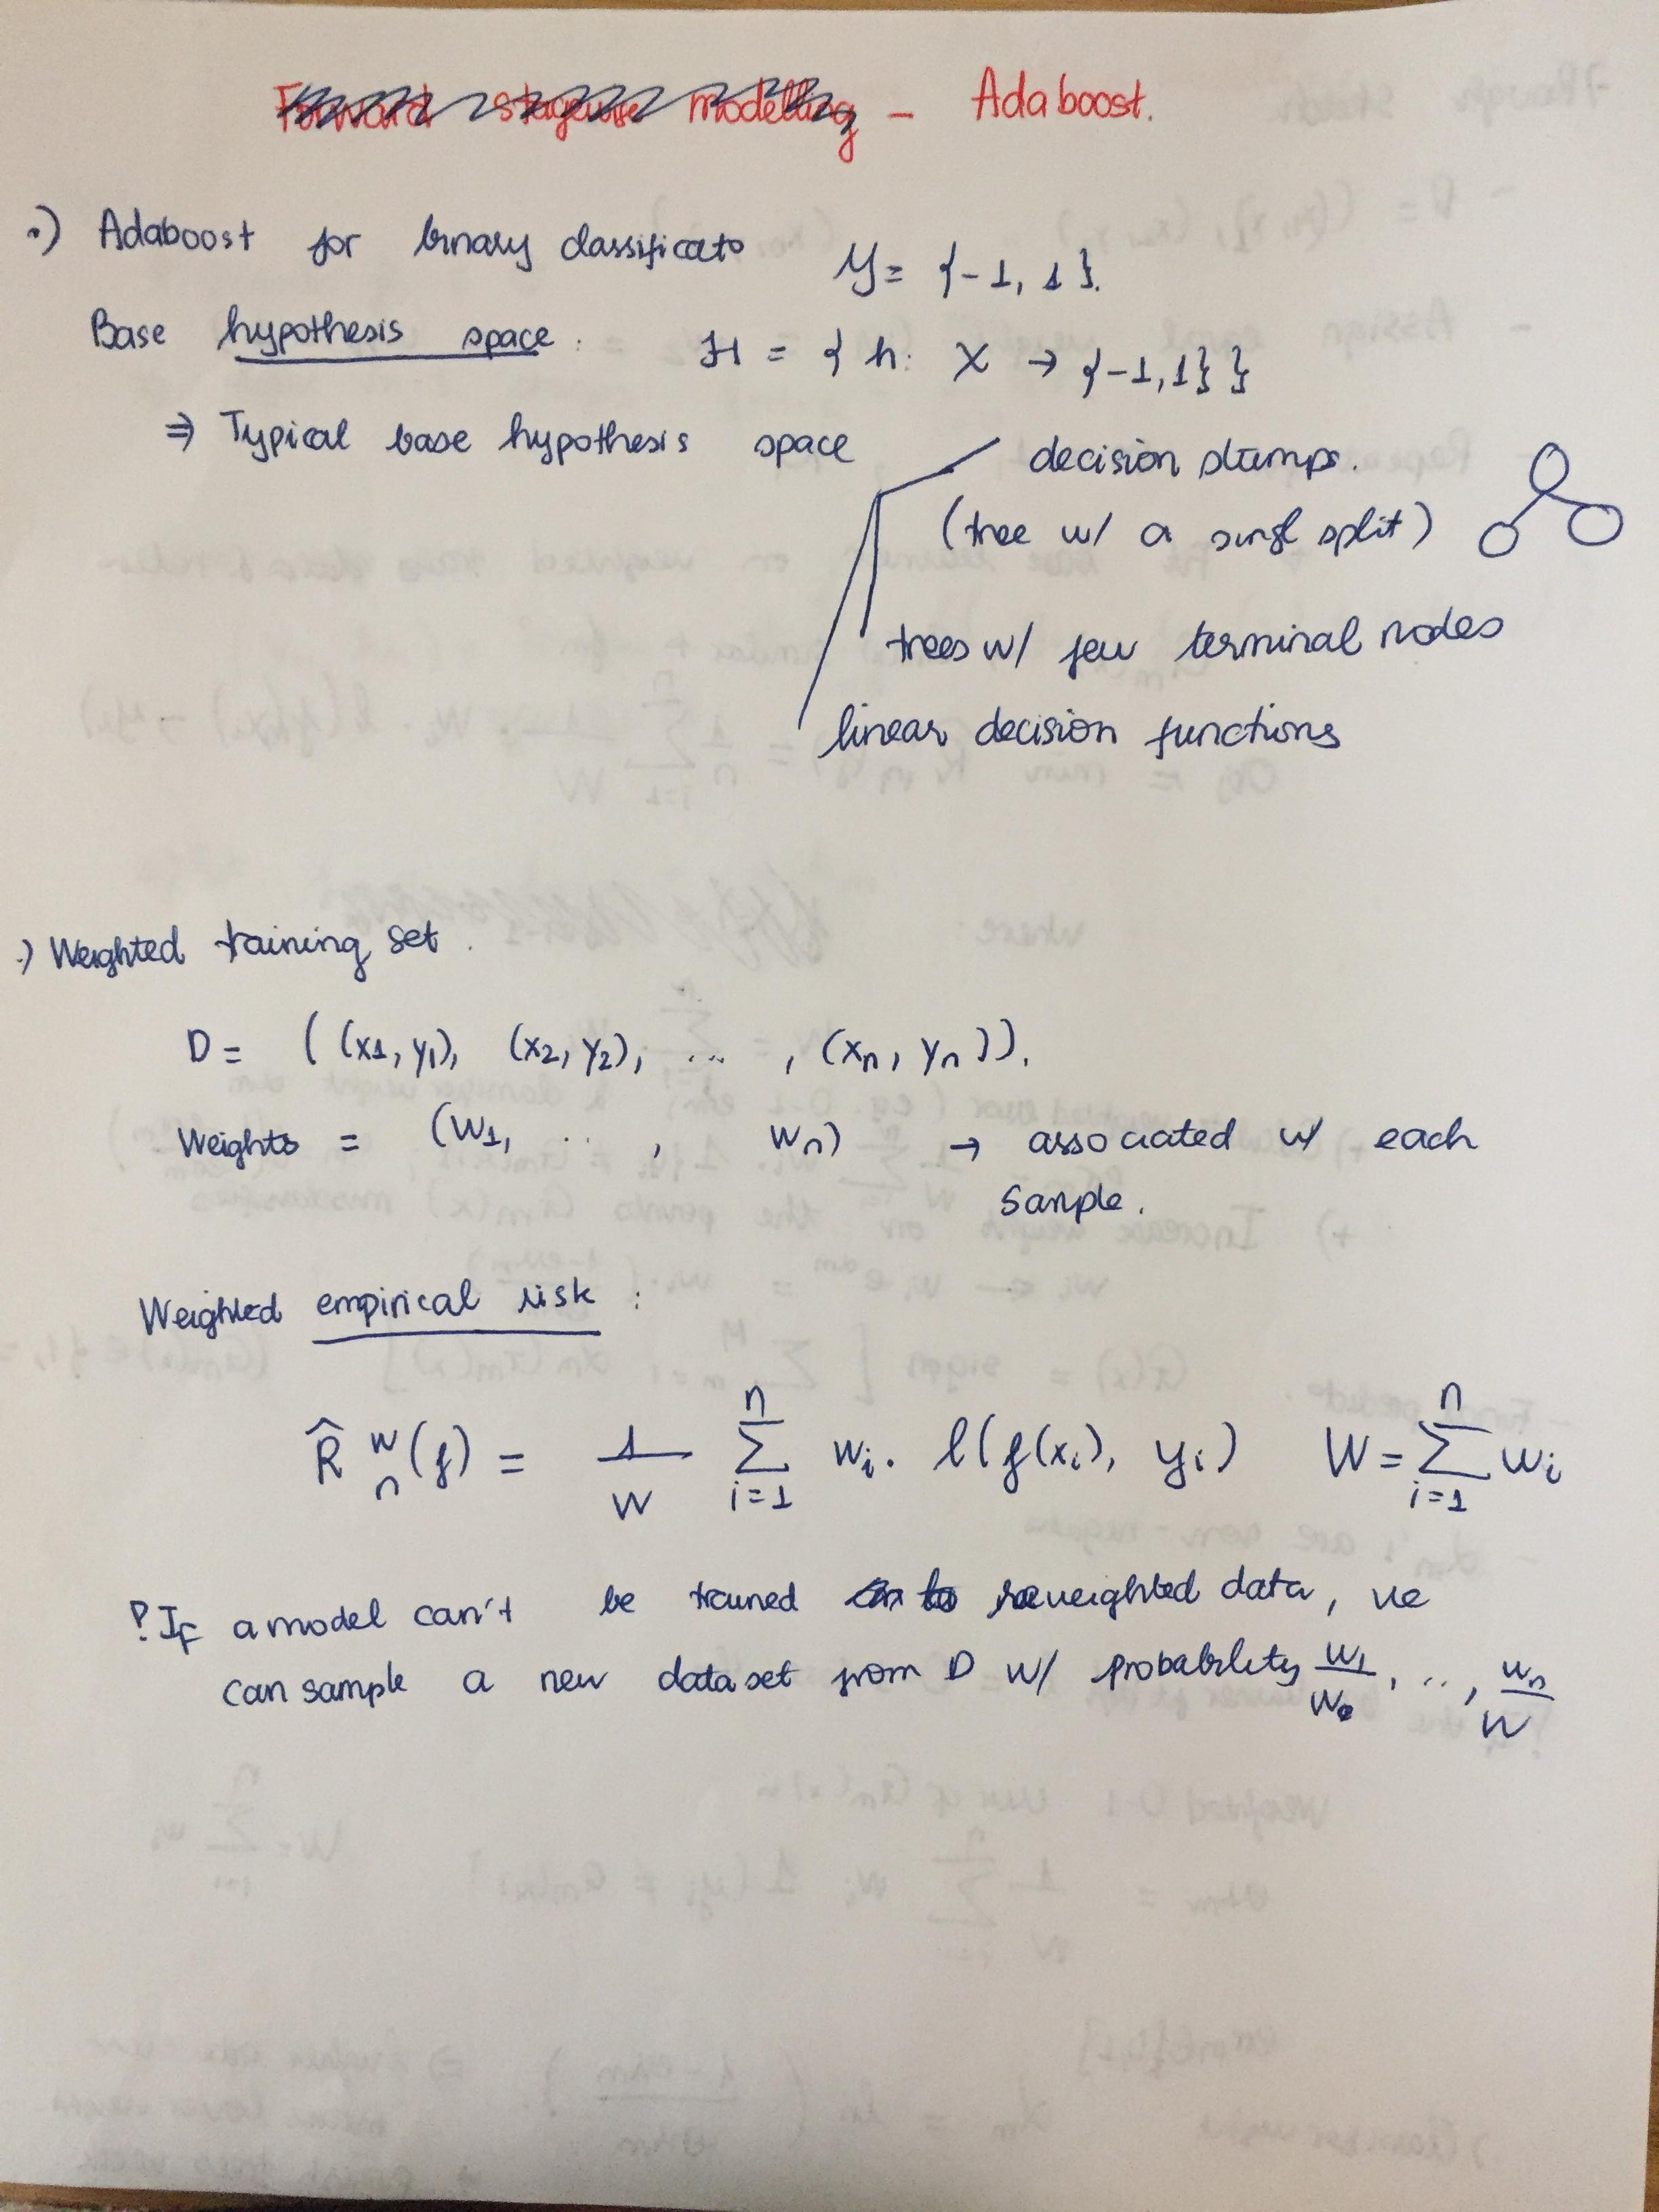 Forward stagewise modelling - Adaboost.
•) Adaboost for binary classificato y = {-1, 1}.
Base hypothesis space : H = { h: X → {-1,1} }
⇒ Typical base hypothesis space
decision stumps.
(tree w/ a singl split)
trees w/ few terminal nodes
linear decision functions
.) Weighted training set .
D = ( (x1, y1), (x2, y2), ... , (xn, yn)).
Weights = (W1, .. , Wn) → associated w/ each
Sample.
Weighted empirical risk :
R̂ʷₙ(f) = 1/W ∑ⁿᵢ₌₁ wᵢ. l(f(xᵢ), yᵢ) W = ∑ⁿᵢ₌₁ wᵢ
? If a model can't be trained reweighted data, we
can sample a new dataset from D w/ probability W1/W, .., Wn/W